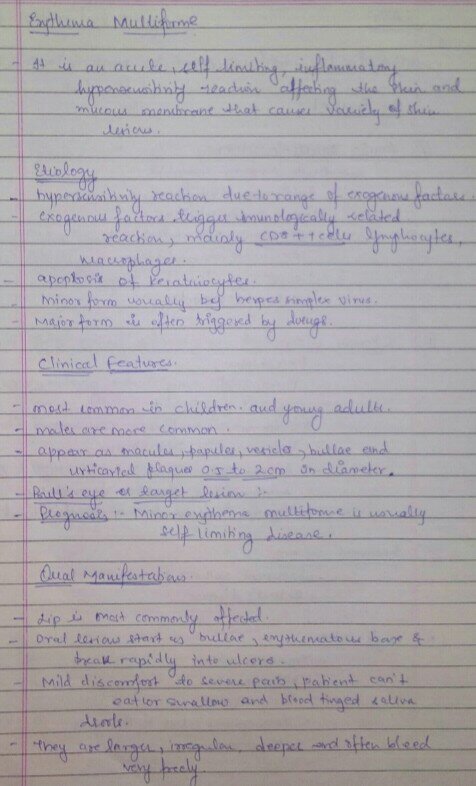 Erythema Multiforme
- It is an acute, self limiting, inflammatory
hypersensitivity reaction affecting the skin and
mucous membrane that causes variety of skin
lesions.
Etiology
- hypersensitivity reaction due to range of exogenous factors.
- exogenous factors trigger immunologically related
reaction, mainly CD8+ T cells lymphocytes,
macrophages.
- apoptosis of keratinocytes.
- Minor form usually herpes simplex virus.
- Major form is often triggered by drugs.
Clinical Features.
- most common in children and young adults.
- males are more common.
- appear as macules, papules, vesicles, bullae and
urticarial plaques 0.5 to 2 cm in diameter.
- Bull's eye or target lesion :-
- Prognosis :- Minor erythema multiforme is usually
self limiting disease.
Oral Manifestations
- Lip is most commonly affected.
- Oral lesions start as bullae, erythematous base &
break rapidly into ulcers.
- Mild discomfort to severe pain, patient can't
eat or swallow and blood tinged saliva
drools.
- They are larger, irregular, deeper and often bleed
very freely.